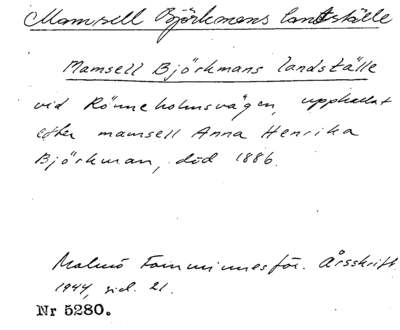 Mamsell Björkmans landställe
Mamsell Björkmans landställe
vid Rönneholmsvägen, uppkallat
efter mamsell Anna Henrika
Björkman, död 1886.
Malmö Fornminnesför. Årsskrift
1944, sid. 21.
Nr 5280.